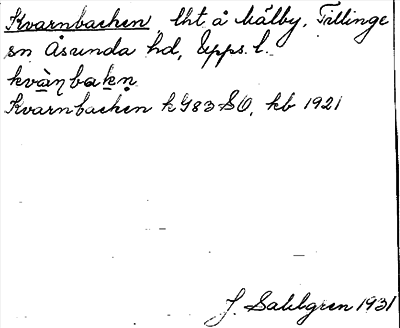 Kvarnbacken lht å Målby, Tillinge
sn Åsunda hd, Upps. l.
kvàṇbakṇ
Kvarnbacken k G83 SO, kb 1921
J. Sahlgren 1931